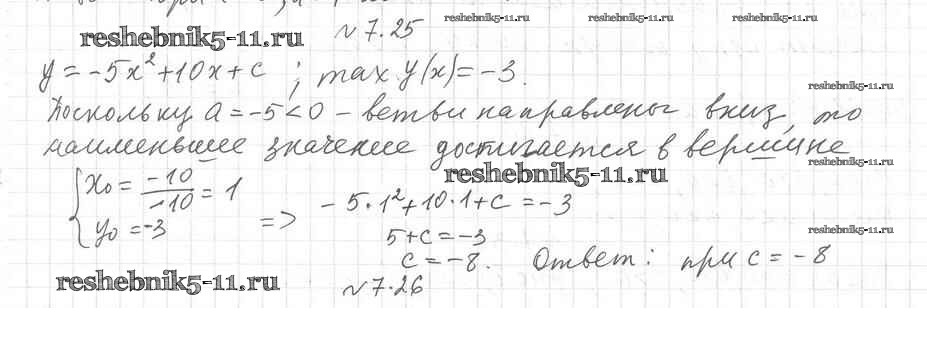 reshebnik5-11.ru reshebnik5-11.ru reshebnik5-11.ru
reshebnik5-11.ru №7.25
y = -5x² + 10x + c ; max y(x) = -3.
reshebnik5-11.ru
Поскольку a = -5 < 0 - ветви направлены вниз, то
наименьшее значение достигается в вершине
reshebnik5-11.ru reshebnik5-11.ru
{ x₀ = -10/-10 = 1
y₀ = -3
=> -5·1² + 10·1 + c = -3
reshebnik5-11.ru
5 + c = -3
c = -8. Ответ: при c = -8
reshebnik5-11.ru №7.26